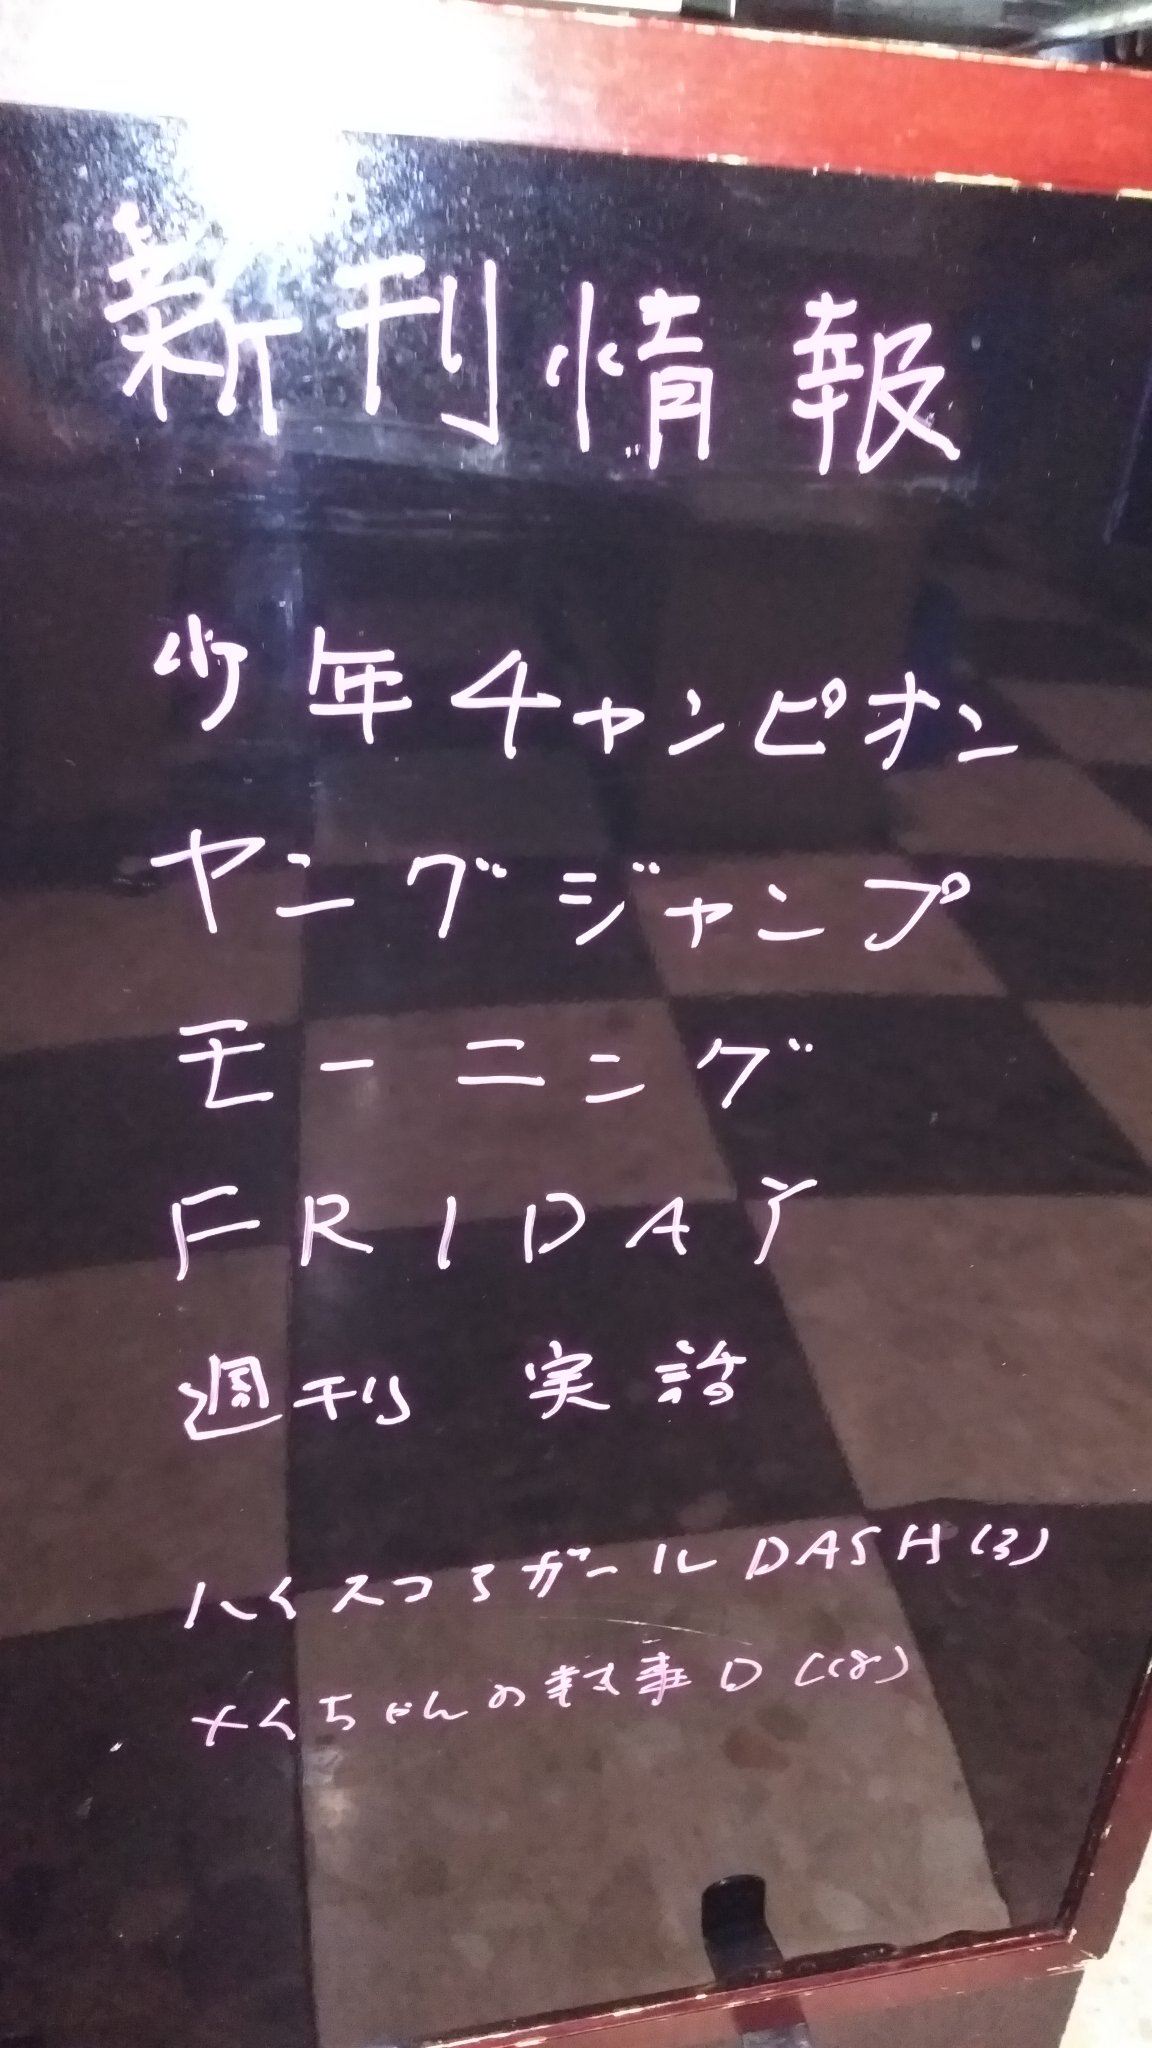 新刊情報
少年チャンピオン
ヤングジャンプ
モーニング
FRIDAY
週刊 実話
ハイスコアガールDASH(3)
メイちゃんの執事D(18)